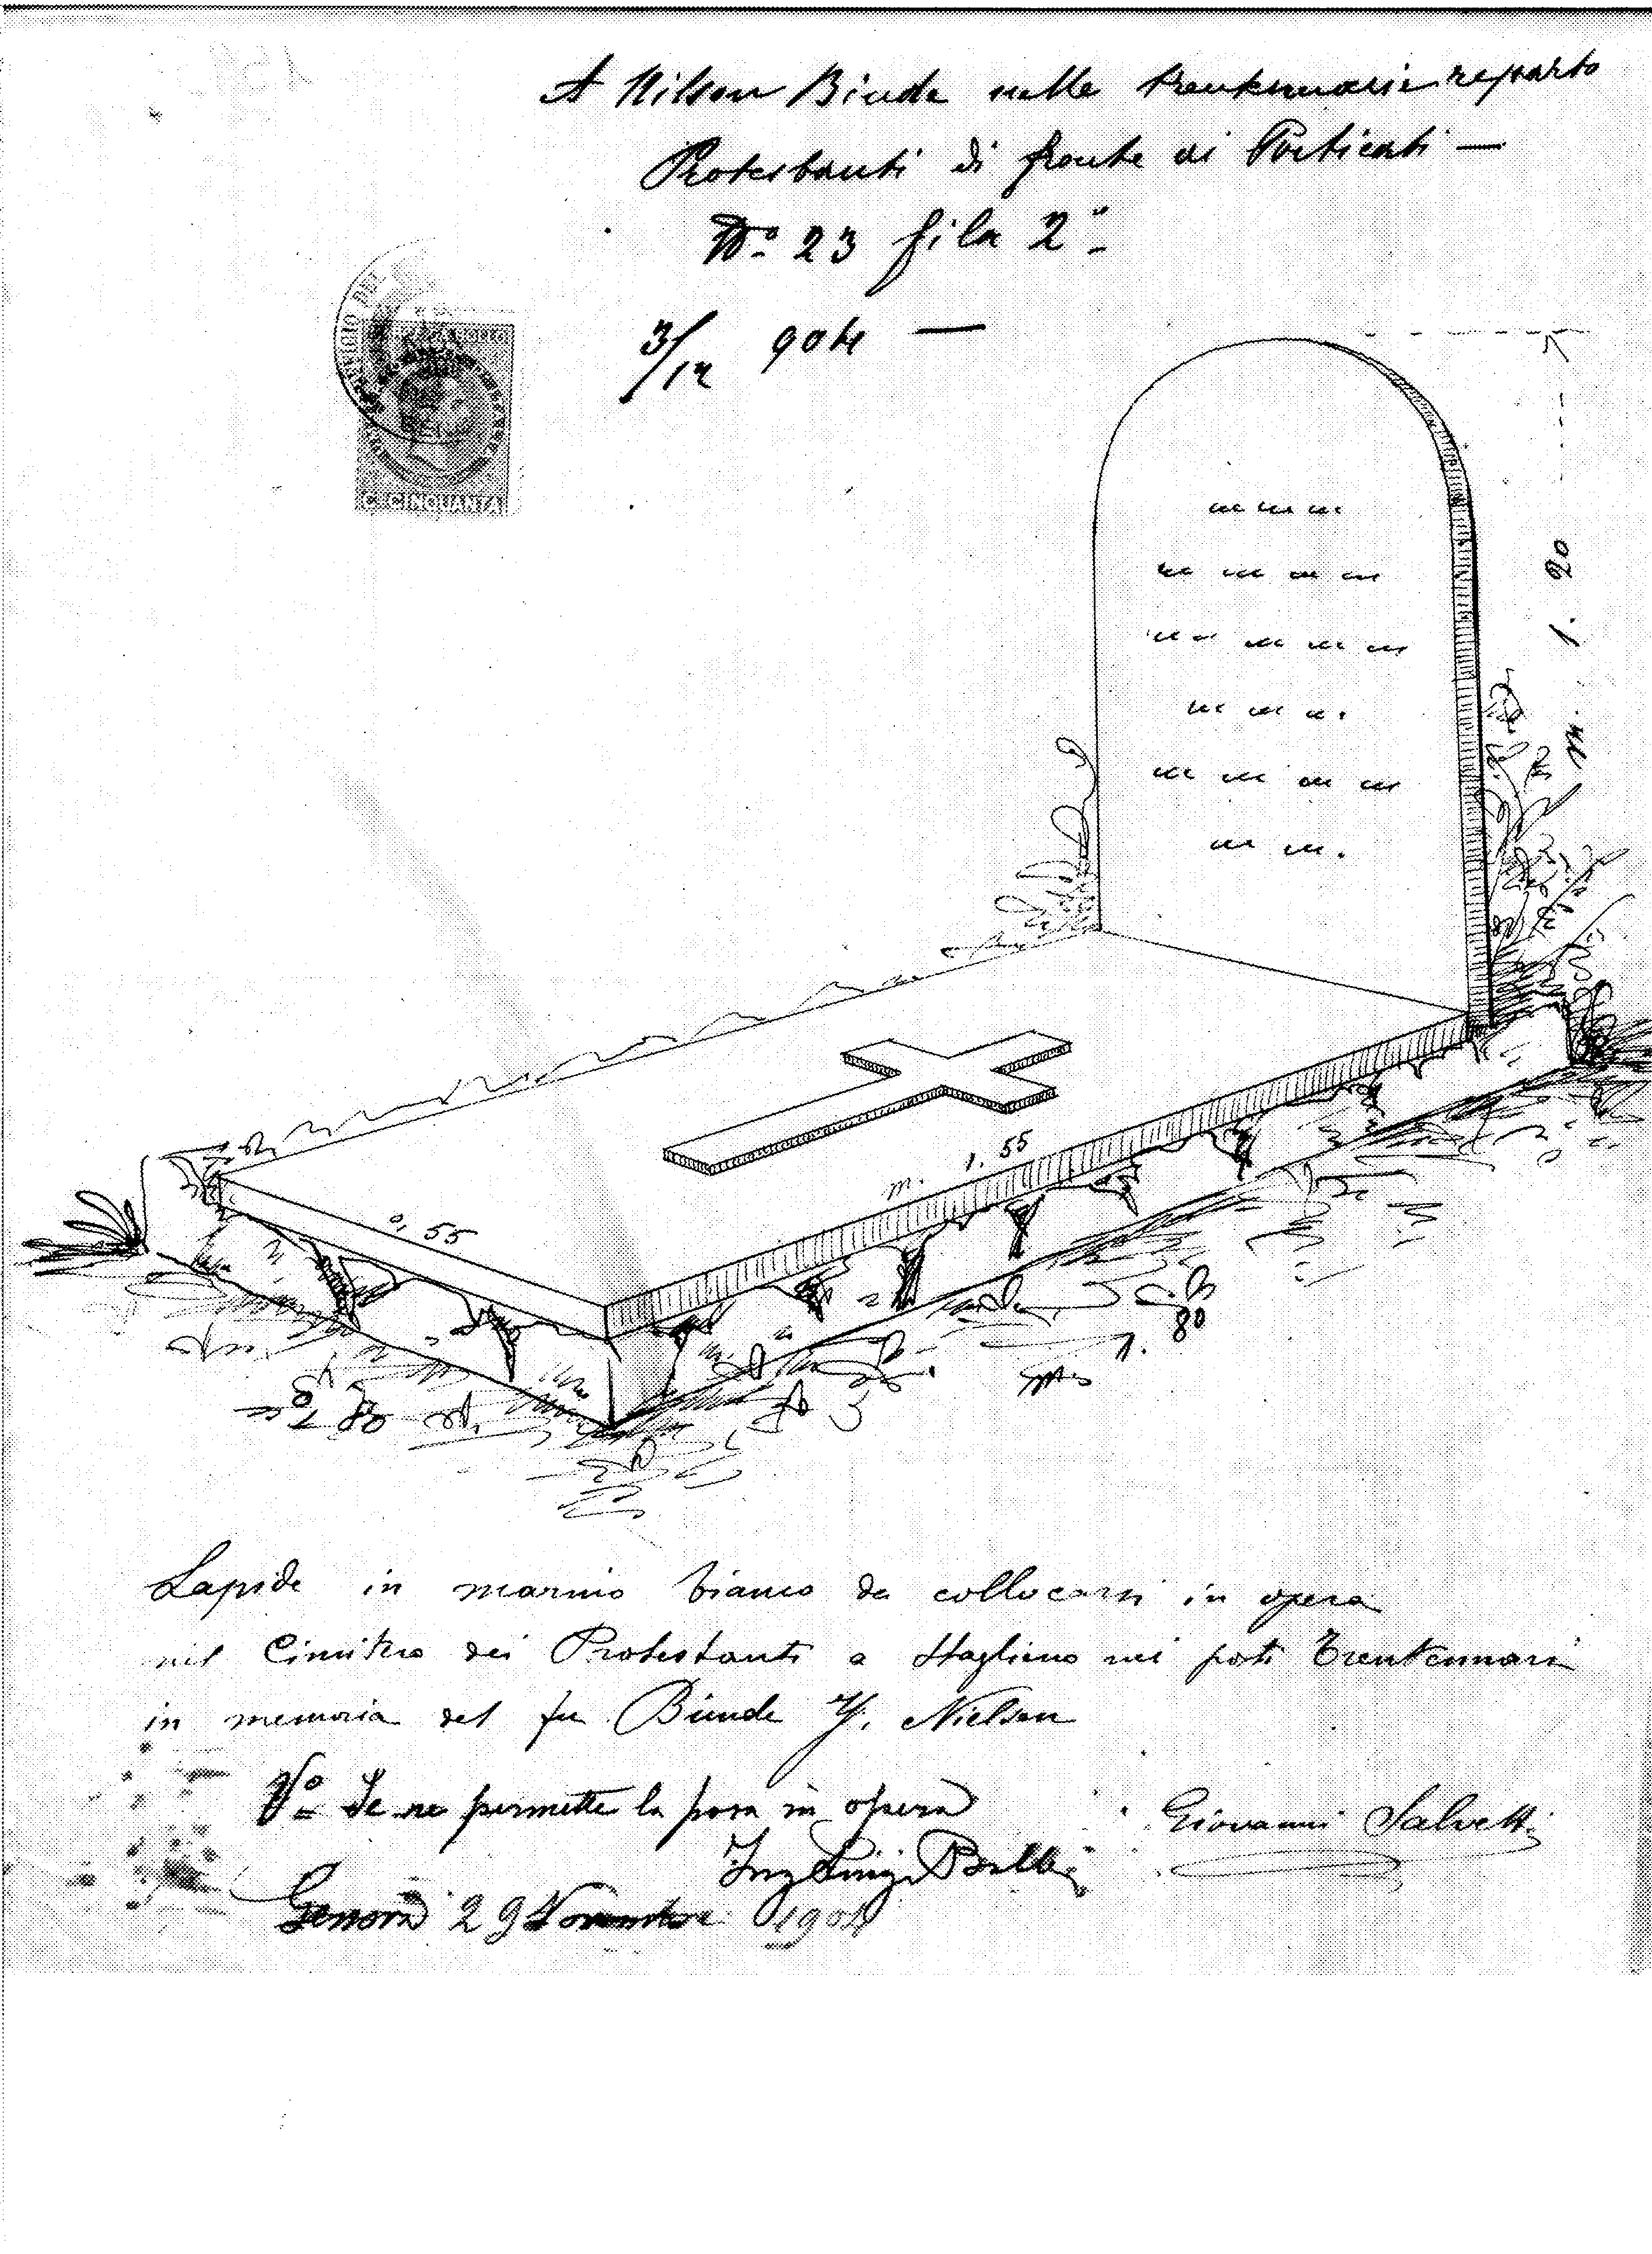 A Nilson Biude nelle trentennarie reparto
Protestanti di fronte ai Porticati —
N° 23 fila 2ª
3/12 904 —
UFFICIO DEL
MARCA DA BOLLO
C. CINQUANTA
m. 1. 20
m. 1. 55
0, 55
1. 80
Lapide in marmo bianco da collocarsi in opera
nel Cimitero dei Protestanti a Staglieno nei posti Trentennari
in memoria del fu Biunde Y. Nielsen
V° Se ne permette la posa in opera
Giovanni Salvetti
Ing Luigi
Genova 29 Novembre 1904